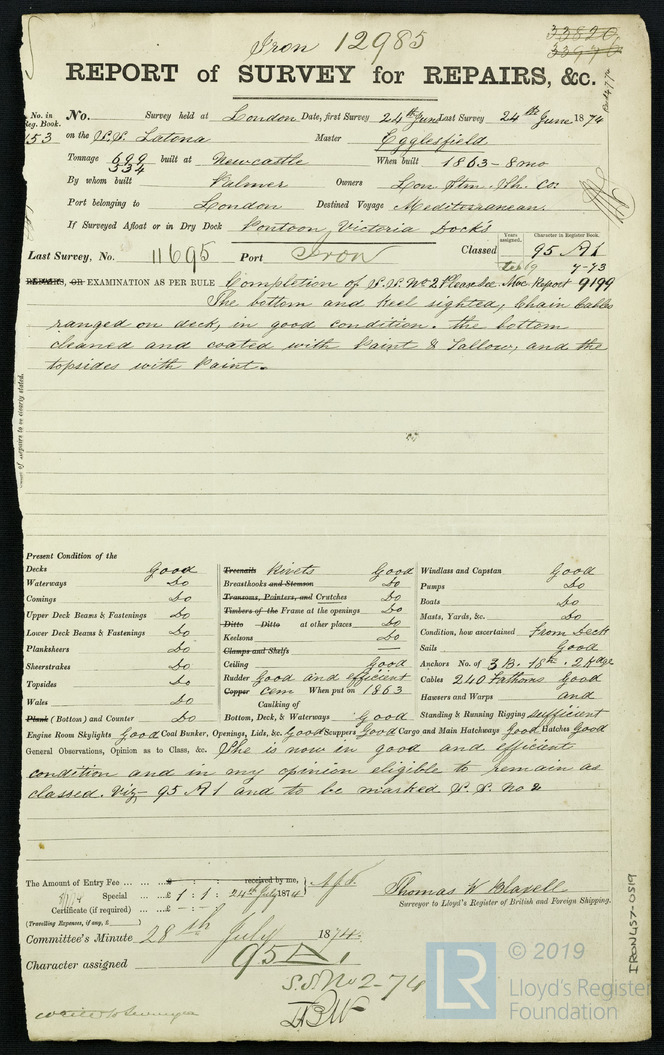 Iron 12985
33820
33976
REPORT of SURVEY for REPAIRS, &c.
No. in Reg. Book. No. Survey held at London Date, first Survey 24th June Last Survey 24th June 1874
153 on the S.S. Latona Master Egglesfield
Tonnage 699 built at Newcastle When built 1863-8mo
534
By whom built Palmer Owners Lon. Stm. Sh. Co:
Port belonging to London Destined Voyage Mediterranean.
If Surveyed Afloat or in Dry Dock Pontoon, Victoria Docks
Years assigned. Character in Register Book.
Last Survey, No. 11695 Port Iron Classed 95 A1
7-73
REPAIRS, OR EXAMINATION AS PER RULE Completion of S.S. No 2 Please see Report 9199
The bottom and keel sighted, Chain Cables
ranged on deck, in good condition. the bottom
cleaned and coated with Paint & Tallow, and the
topsides with Paint.
of Repairs to be clearly stated.
Present Condition of the
Decks Good
Waterways Do
Comings Do
Upper Deck Beams & Fastenings Do
Lower Deck Beams & Fastenings Do
Planksheers Do
Sheerstrakes Do
Topsides Do
Wales Do
Plank (Bottom) and Counter Do
Treenails Rivets Good
Breasthooks and Stemson Do
Transoms, Pointers, and Crutches Do
Timbers of the Frame at the openings Do
Ditto Ditto at other places Do
Keelsons Do
Clamps and Shelfs —
Ceiling Good
Rudder Good and efficient
Copper Cem When put on 1863
Caulking of
Bottom, Deck, & Waterways Good
Windlass and Capstan Good
Pumps Do
Boats Do
Masts, Yards, &c. Do
Condition, how ascertained From Deck
Sails Good
Anchors No. of 3 B. 1 St. 2 Kdge
Cables 240 Fathoms Good
Hawsers and Warps and
Standing & Running Rigging sufficient
Engine Room Skylights Good Coal Bunker, Openings, Lids, &c. Good Scuppers Good Cargo and Main Hatchways Good Hatches Good
General Observations, Opinion as to Class, &c. She is now in good and efficient
condition and in my opinion eligible to remain as
classed. Viz- 95 A1 and to be marked S.S. No 2
The Amount of Entry Fee ... ... £ : : received by me,
Special ... ... £ 1 : 1 : 24th July 1874
Certificate (if required) ... £ - : - :
(Travelling Expenses, if any, £ )
Thomas W Blaxell
Surveyor to Lloyd's Register of British and Foreign Shipping.
Committee's Minute 28th July 1874
Character assigned 95 A1
S.S. No 2-74
IRON457-0519
LR
© 2019
Lloyd's Register
Foundation